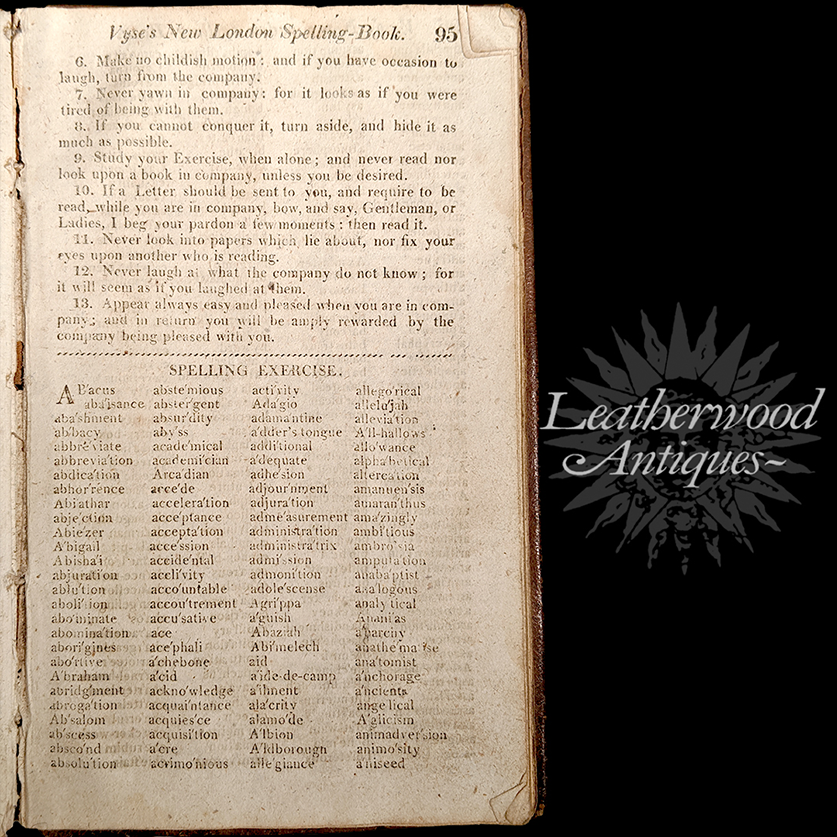 Vyse's New London Spelling-Book. 95
6. Make no childish motion: and if you have occasion to
laugh, turn from the company.
7. Never yawn in company: for it looks as if you were
tired of being with them.
8. If you cannot conquer it, turn aside, and hide it as
much as possible.
9. Study your Exercise, when alone; and never read nor
look upon a book in company, unless you be desired.
10. If a Letter should be sent to you, and require to be
read, while you are in company, bow, and say, Gentleman, or
Ladies, I beg your pardon a few moments: then read it.
11. Never look into papers which lie about, nor fix your
eyes upon another who is reading.
12. Never laugh at what the company do not know; for
it will seem as if you laughed at them.
13. Appear always easy and pleased when you are in com-
pany; and in return you will be amply rewarded by the
company being pleased with you.
SPELLING EXERCISE.
AB'acus
aba'isance
aba'shment
ab'bacy
abbre'viate
abbrevia'tion
abdica'tion
abhor'rence
Abi'athar
abje'ction
Abie'zer
A'bigail
A'bisha'i
abjura'tion
ablu'tion
aboli'tion
abo'minate
abomina'tion
abori'gines
abo'rtive
A'braham
abridg'ment
abroga'tion
Ab'salom
ab'scess
absco'nd
absolu'tion
abste'mious
abster'gent
absur'dity
aby'ss
acade'mical
academi'cian
Arca'dian
acce'de
accelera'tion
acce'ptance
accepta'tion
acce'ssion
accide'ntal
accli'vity
acco'untable
accou'trement
accu'sative
ace
ace'phali
a'chebone
a'cid
ackno'wledge
acquai'ntance
acquies'ce
acquisi'tion
a'cre
acrimo'nious
acti'vity
Ada'gio
adama'ntine
a'dder's tongue
addi'tional
a'dequate
adhe'sion
adjour'nment
adjura'tion
adme'asurement
administra'tion
administra'trix
admi'ssion
admoni'tion
adole'scense
Agri'ppa
a'guish
Ahaziah
Abi'melech
aid
a'ide-de-camp
a'ilment
ala'crity
alamo'de
A'lbion
A'ldborough
alle'giance
allego'rical
allelu'jah
allevia'tion
A'll-hallows
allo'wance
alpha'betical
alterca'tion
amanuen'sis
amaran'thus
ama'zingly
ambi'tious
ambro'sia
amputa'tion
anaba'ptist
ana'logous
analy'tical
Anani'as
a'narchy
anathe'matise
ana'tomist
a'nchorage
a'ncients
ange'lical
A'glicism
animadver'sion
animo'sity
a'niseed
Leatherwood
Antiques~